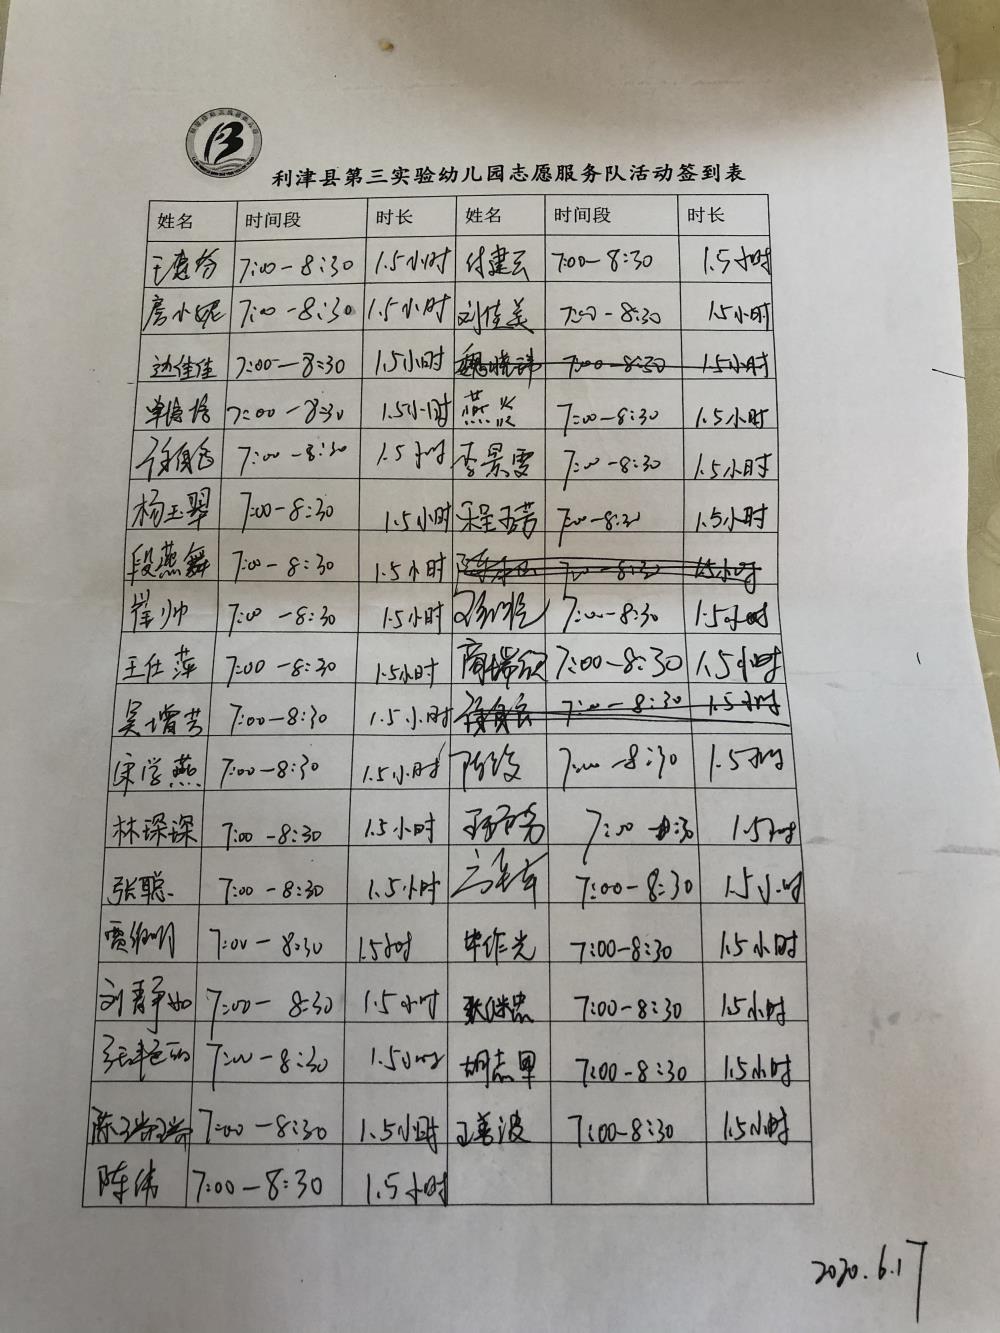 利津县第三实验幼儿园志愿服务队活动签到表
姓名 时间段 时长 姓名 时间段 时长
7:00-8:30 1.5小时 付建云 7:00-8:30 1.5小时
房小妮 7:00-8:30 1.5小时 刘佳美 7:00-8:30 1.5小时
边佳佳 7:00-8:30 1.5小时 魏晓 7:00-8:30 1.5小时
7:00-8:30 1.5小时 燕 7:00-8:30 1.5小时
7:00-8:30 1.5小时 李景雯 7:00-8:30 1.5小时
杨玉翠 7:00-8:30 1.5小时 7:00-8:30 1.5小时
段燕舞 7:00-8:30 1.5小时 7:00-8:30 1.5小时
崔帅 7:00-8:30 1.5小时 7:00-8:30 1.5小时
王仕萍 7:00-8:30 1.5小时 商瑞欣 7:00-8:30 1.5小时
吴增芳 7:00-8:30 1.5小时 7:00-8:30 1.5小时
宋学燕 7:00-8:30 1.5小时 7:00-8:30 1.5小时
林琛琛 7:00-8:30 1.5小时 7:00-8:30 1.5小时
张聪 7:00-8:30 1.5小时 7:00-8:30 1.5小时
贾 明 7:00-8:30 1.5小时 毕作光 7:00-8:30 1.5小时
刘静如 7:00-8:30 1.5小时 张继忠 7:00-8:30 1.5小时
7:00-8:30 1.5小时 胡志 7:00-8:30 1.5小时
陈瑞瑞 7:00-8:30 1.5小时 王善波 7:00-8:30 1.5小时
陈伟 7:00-8:30 1.5小时
2020.6.17